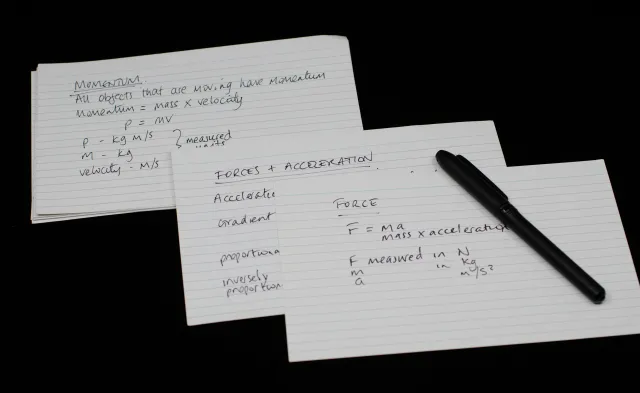 MOMENTUM
All objects that are moving have momentum
Momentum = mass x velocity
P = MV
P - kg m/s
m - kg
velocity - M/S
} measured units
FORCES + ACCELERATION
Acceleratio
Gradient
proportiona
inversely
proportion
FORCE
F = Ma
Mass x acceleration
F measured in N
m in kg
a m/s²